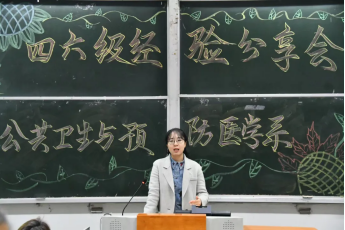 四六级经验分享会
公共卫生与预防医学系